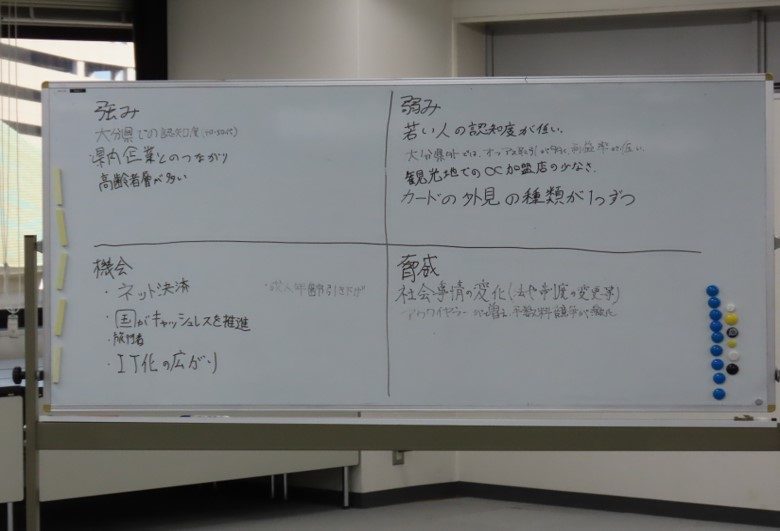 強み
大分県での認知度(40-50代)
県内企業とのつながり
高齢者層が多い
弱み
若い人の認知度が低い.
大分県外では、オフアス取引が多く、利益率が低い.
観光地でのOC加盟店の少なさ.
カードの外見の種類が1つずつ
機会
・ネット決済
・成人年齢引き下げ
・国がキャッシュレスを推進
・旅行者
・IT化の広がり
脅威
社会事情の変化(法や制度の変更等)
アクワイヤラーが増え手数料競争が激化